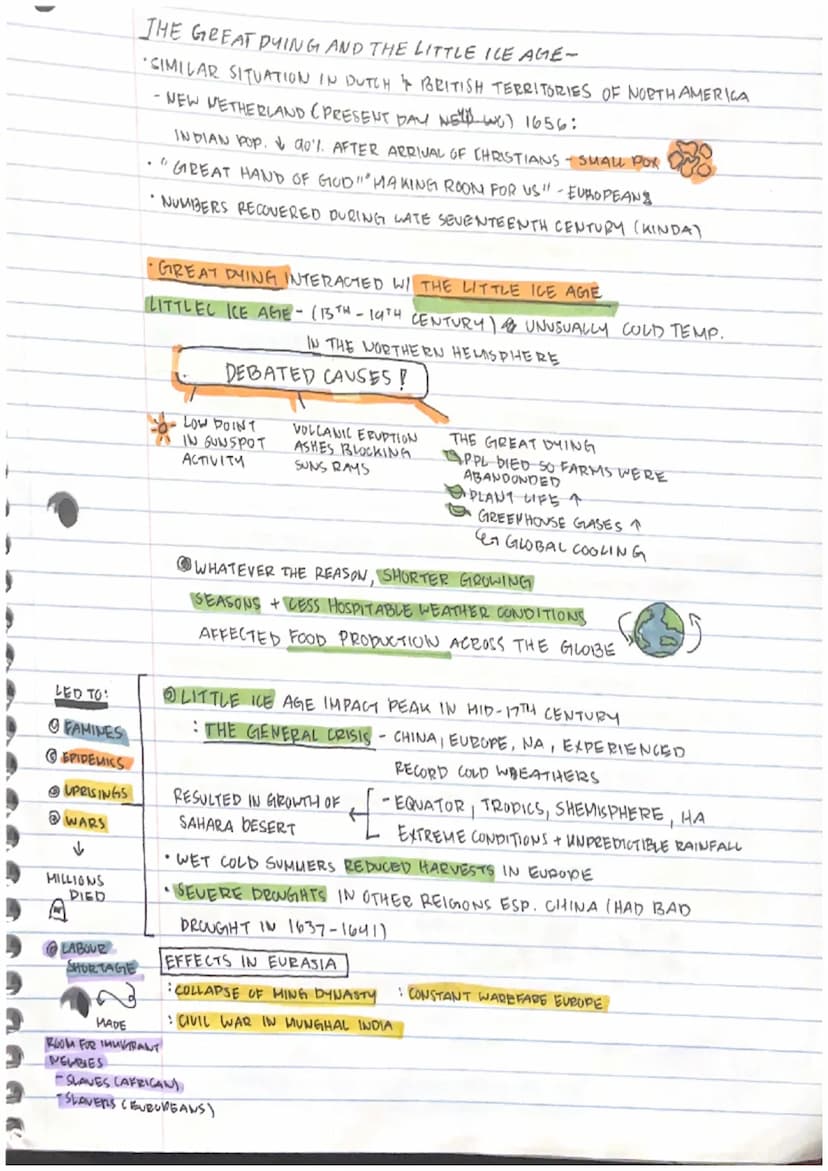 THE GREAT DYING AND THE LITTLE ICE AGE~
• SIMILAR SITUATION IN DUTCH & BRITISH TERRITORIES OF NORTH AMERICA
- NEW NETHERLAND (PRESENT DAY) 1656:
INDIAN POP. ↓ 90% AFTER ARRIVAL OF CHRISTIANS - SMALL POX
• "GREAT HAND OF GOD" "MAKING ROOM FOR US" - EUROPEANS
• NUMBERS RECOVERED DURING LATE SEVENTEENTH CENTURY (KINDA)
• GREAT DYING INTERACTED W/ THE LITTLE ICE AGE
LITTLEC ICE AGE - (13TH - 19TH CENTURY) UNUSUALLY COLD TEMP.
IN THE NORTHERN HEMISPHERE
DEBATED CAUSES!
LOW POINT
IN SUNSPOT
ACTIVITY
VOLCANIC ERUPTION
ASHES BLOCKING
SUNS RAYS
THE GREAT DYING
PPL DIED SO FARMS WERE
ABANDONDED
PLANT LIFE ↑
GREENHOUSE GASES ↑
↪ GLOBAL COOLING
WHATEVER THE REASON, SHORTER GROWING
SEASONS + LESS HOSPITABLE WEATHER CONDITIONS
AFFECTED FOOD PRODUCTION ACROSS THE GLOBE
LED TO:
FAMINES
EPIDEMICS
UPRISINGS
WARS
↓
MILLIONS
DIED
LITTLE ICE AGE IMPACT PEAK IN MID-17TH CENTURY
: THE GENERAL CRISIS - CHINA, EUROPE, NA, EXPERIENCED
RECORD COLD WEATHERS
RESULTED IN GROWTH OF
SAHARA DESERT
← - EQUATOR, TROPICS, SHEMISPHERE, HA
EXTREME CONDITIONS + UNPREDICTIBLE RAINFALL
• WET COLD SUMMERS REDUCED HARVESTS IN EUROPE
• SEVERE DROUGHTS IN OTHER REIGONS ESP. CHINA (HAD BAD
DROUGHT IN 1637-1641)
LABOUR
SHORTAGE
MADE
ROOM FOR IMMIGRANT
NEWBIES
- SLAVES (AFRICAN)
- SLAVERS (EUROPEANS)
EFFECTS IN EURASIA
: COLLAPSE OF MING DYNASTY : CONSTANT WAREFARE EUROPE
: CIVIL WAR IN MUNGHAL INDIA